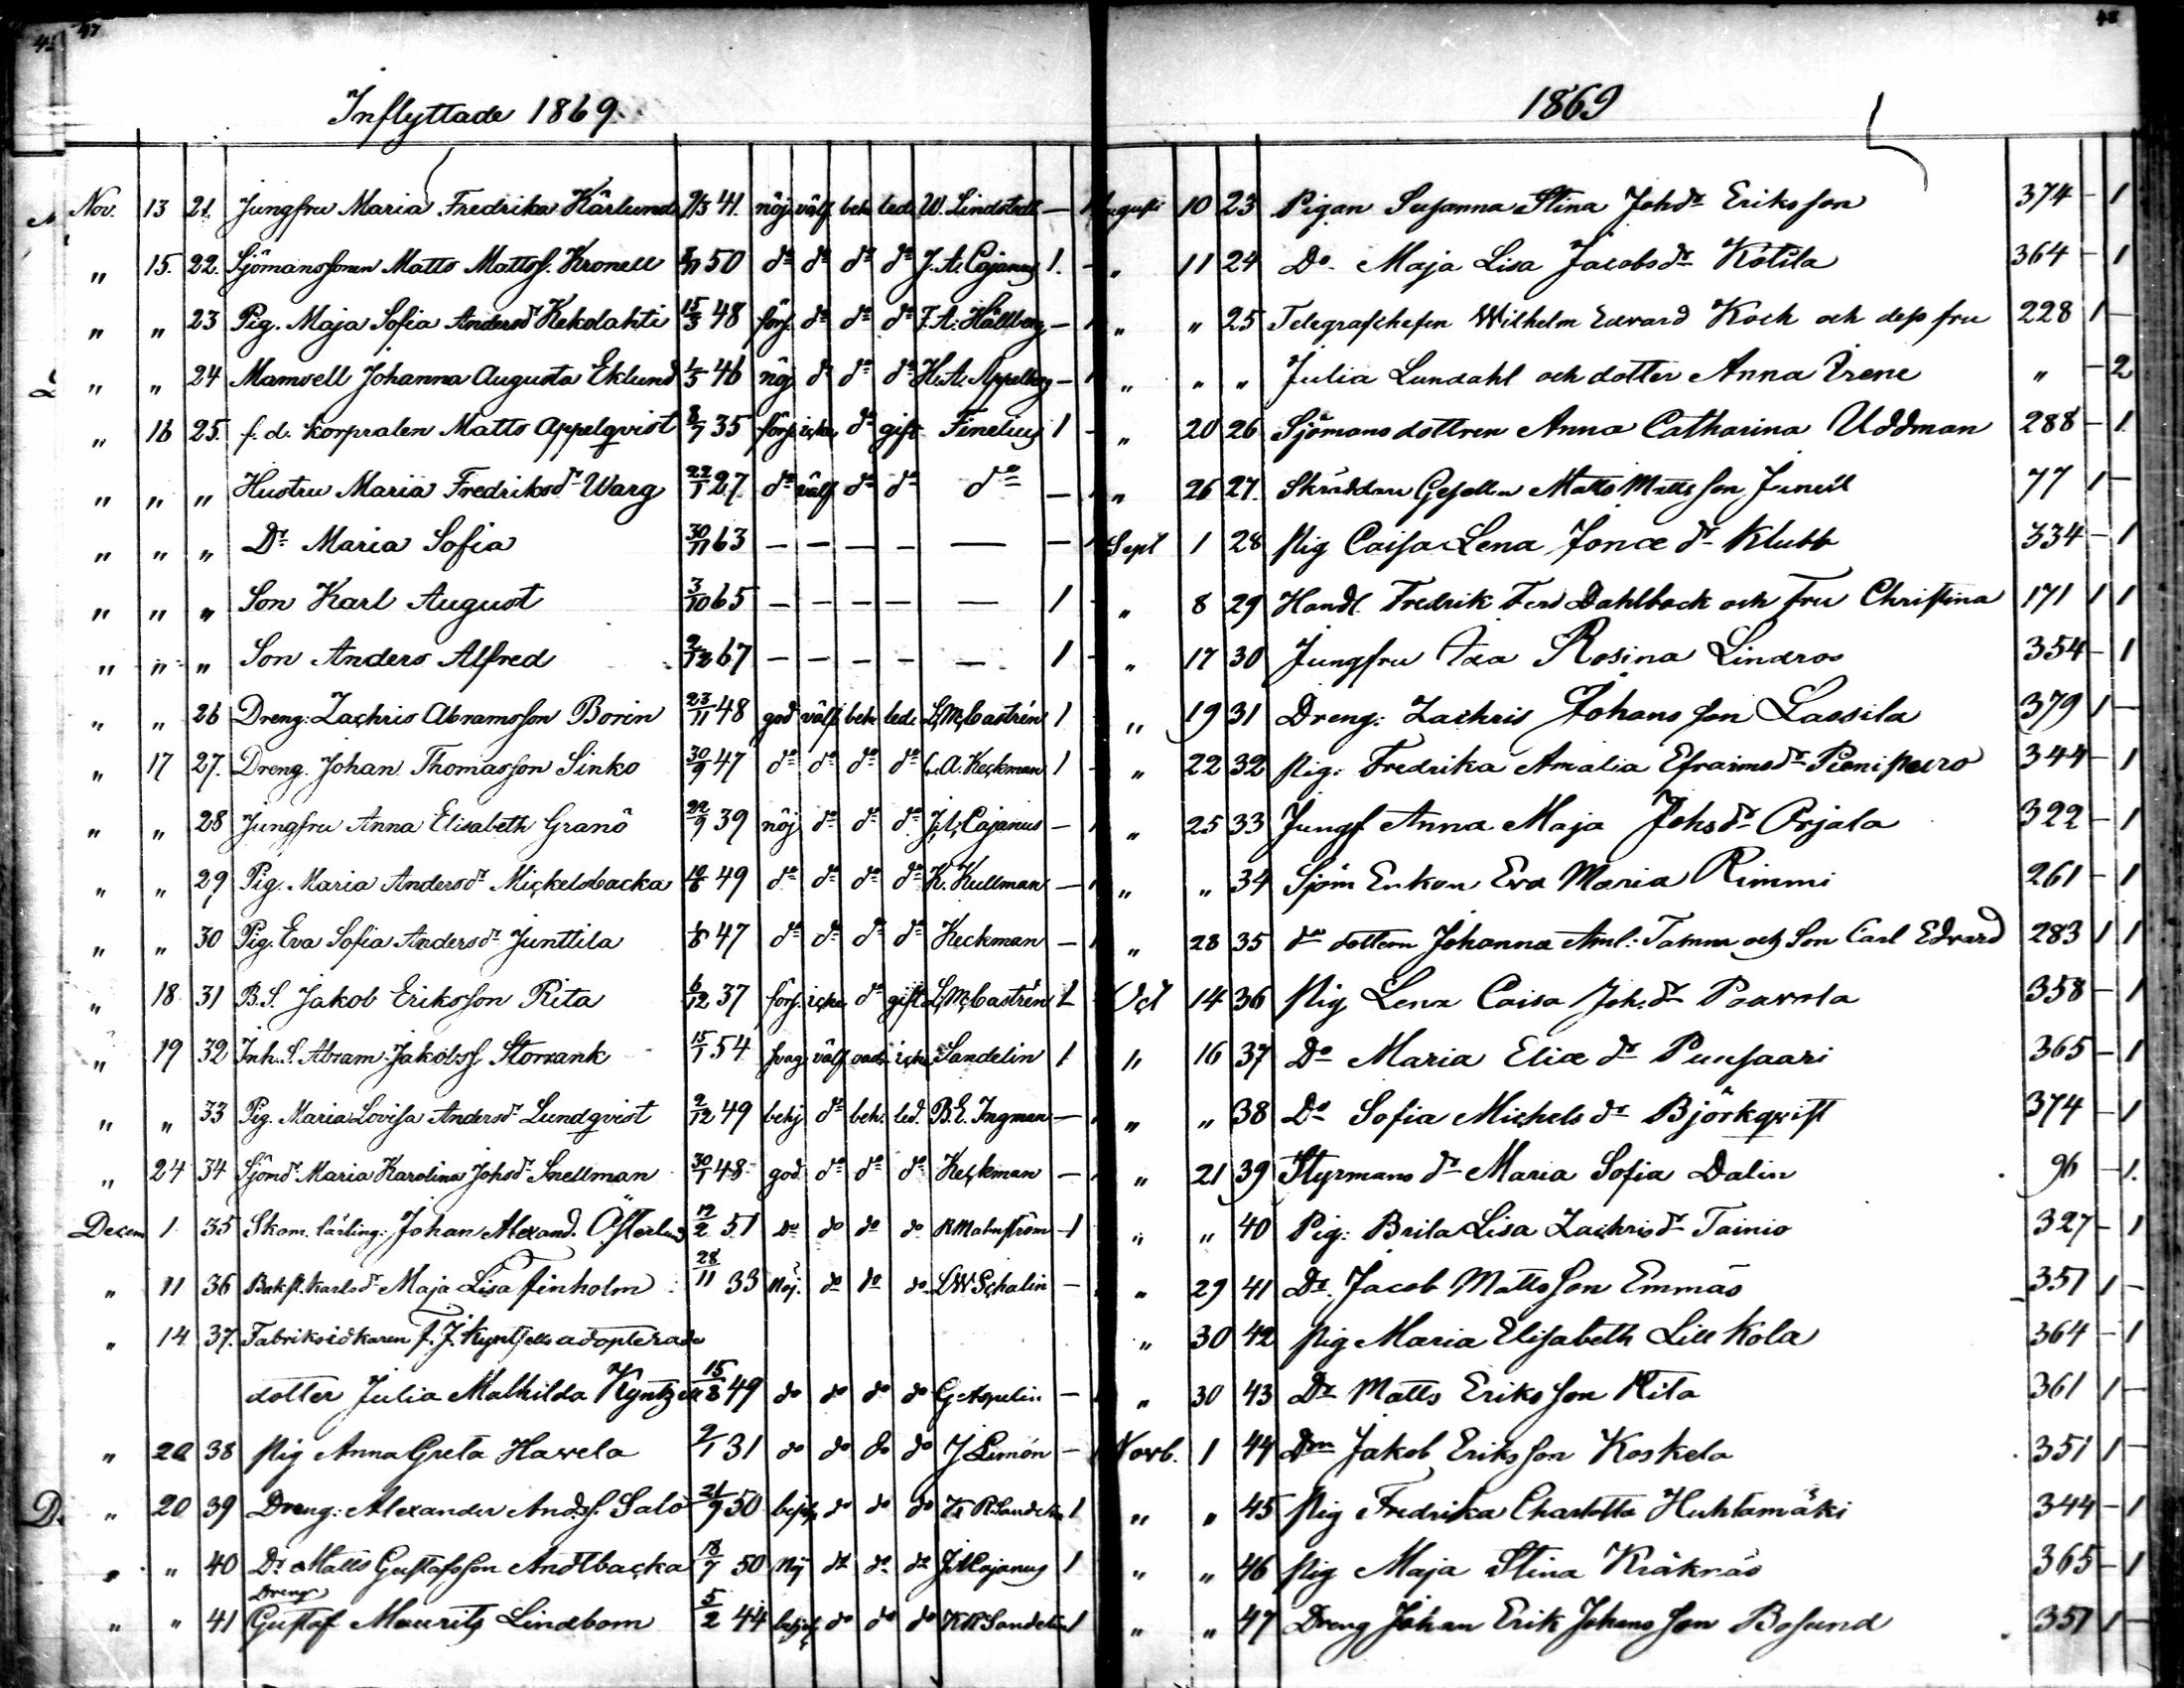 47
48
Inflyttade 1869
1869
Nov. 13 21. Jungfru Maria Fredrika Kårlund 9/3 41. nöj välf beh led. W. Lindstedt — 1
" 15. 22. Sjömanssonen Matts Mattss. Kronell 50 do do do do J. A. Cajanus 1. -
" " 23 Pig. Maja Sofia Andersdr Kekolahti 15/3 48 förs. do do do F. A. Hällberg — 1
" " 24 Mamsell Johanna Augusta Eklund 1/3 46 nöj do do do H. A. Appelberg — 1
" 16 25. f. d. korpralen Matts Appelqvist 8/7 35 förs. icke do gift Finelius 1 -
" " " Hustru Maria Fredriksdr Warg 22/1 27 do välf do do do —
" " " Dr Maria Sofia 30/11 63 — — — — — — 1
" " " Son Karl August 3/10 65 — — — — — 1 -
" " " Son Anders Alfred 2/12 67 — — — — — 1 -
" " 26 Dreng: Zachris Abramsson Borin 23/11 48 god välf. beh. led. L. M. Castrén 1
" 17 27. Dreng. Johan Thomasson Sinko 30/9 47 do do do do A. Keckman 1 -
" " 28 Jungfru Anna Elisabeth Granö 22/9 39 nöj do do do J. A. Cajanus —
" " 29 Pig. Maria Andersdr Mickelsbacka 49 do do do do K. Kullman —
" " 30 Pig. Eva Sofia Andersdr Junttila 1/8 47 do do do do Keckman —
" 18 31 B.S. Jakob Eriksson Rita 6/12 37 förs. icke do gift L. M. Castrén 1
" 19 32 Inh. S. Abram Jakobss. Storrank 15/1 54 svag välf oadm. icke Sandelin 1
" " 33 Pig. Maria Lovisa Andersdr Lundqvist 2/12 49 behj do beh. led. B. E. Ingman —
" 24 34 Sjömdr Maria Karolina Johsdr Snellman 30/1 48 god do do do Keckman —
Decem 1 35 Skom. lärling: Johan Alexand. Österlund 12/2 51 do do do do R Malmström -1
" 11 36 Bakst. Karlsdr Maja Lisa Finholm 28/11 33 Nöj. do do do L W Schalin —
" 14 37. Fabriksidkaren F. J. Kyntzells adopterade
dotter Julia Mathilda Kyntzell 15/8 49 do do do do G Aspelin —
" 20 38 Pig Anna Greta Hawela 2/1 31 do do do do J Simón -
" 20 39 Dreng: Alexander Andss. Salo 21/9 50 do do do K R Sandelin 1
" " 40 Dr Matts Gustafsson Andtbacka 18/7 50 Nöj do do do J A Cajanus 1
Dreng
" " 41 Gustaf Maurits Lindbom 5/2 44 do do do K R Sandelin 1
Augusti 10 23 Pigan Susanna Stina Johdr Eriksson 374 - 1
" 11 24 Do. Maja Lisa Jacobsdr Kotila 364 - 1
" " 25 Telegrafchefen Wilhelm Edvard Koch och dess fru 228 1 -
" " " Julia Lundahl och dotter Anna Irene " - 2
" 20 26 Sjömansdottren Anna Catharina Uddman 288 - 1
" 26 27. Skräddare Gesellen Matts Mattsson Junell 77 1 -
Sept 1 28 Pig Caisa Lena Jonæ dr Klubb 334 - 1
" 8 29 Handl. Fredrik Ferd Dahlback och fru Christina 171 1 1
" 17 30 Jungfru Ida Rosina Lindros 354 - 1
" 19 31 Dreng: Zachris Johansson Lassila 379 1 -
" 22 32 Pig: Fredrika Amalia Efraimsdr Pienipuro 344 - 1
" 25 33 Jungf Anna Maja Johsdr Orjala 322 - 1
" " 34 Sjöm Enkan Eva Maria Rimmi 261 - 1
" 28 35 do dottern Johanna Aml: Tamm och Son Carl Edvard 283 1 1
Oct 14 36 Pig Lena Caisa Joh. dr Paavola 358 - 1
" 16 37 Do Maria Eliæ dr Puusaari 365 - 1
" " 38 Do Sofia Michels dr Björkqvist 374 - 1
" 21 39 Styrmans dr Maria Sofia Dalin 96 - 1.
" " 40 Pig: Brita Lisa Zachrisdr Tainio 327 - 1
" 29 41 Dr. Jacob Mattsson Emmäs 351 1 -
" 30 42 Pig Maria Elisabeth Lill Kola 364 - 1
" 30 43 Dr Matts Eriksson Rita 361 1 -
Novb. 1 44 Drn Jakob Eriksson Koskela 351 1 -
" " 45 Pig Fredrika Charlotta Huhtamäki 344 - 1
" " 46 Pig Maja Stina Kräknäs 365 - 1
" " 47 Dreng Johan Erik Johansson Bosund 351 1 -